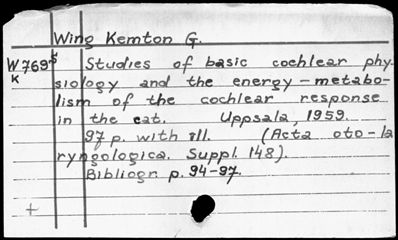 Wing Kemton G.
W769s Studies of basic cochlear phy-
K siology and the energy-metabo-
lism of the cochlear response
in the cat. Uppsala, 1959.
97 p. with ill. (Acta oto-la
ryngologica. Suppl. 148).
Bibliogr. p. 94-97.
+